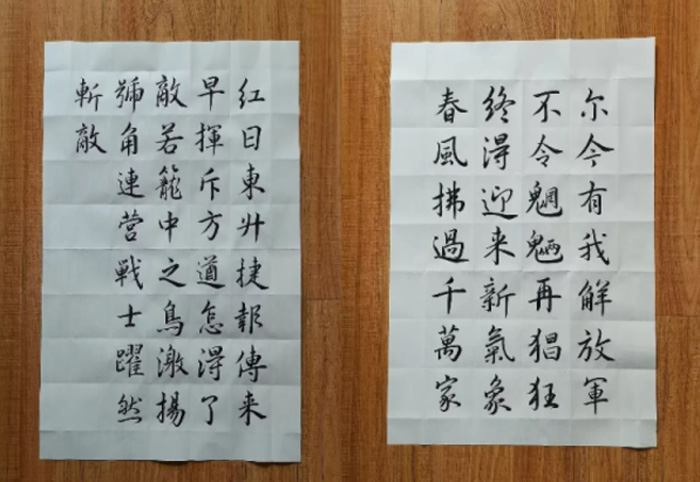 红日東升捷報傳来
早揮斥方遒怎得了
敵若籠中之鳥激揚
號角連营戰士躍然
斬敵
尔今有我解放軍
不令魍魎再猖狂
终得迎来新氣象
春風拂過千萬家